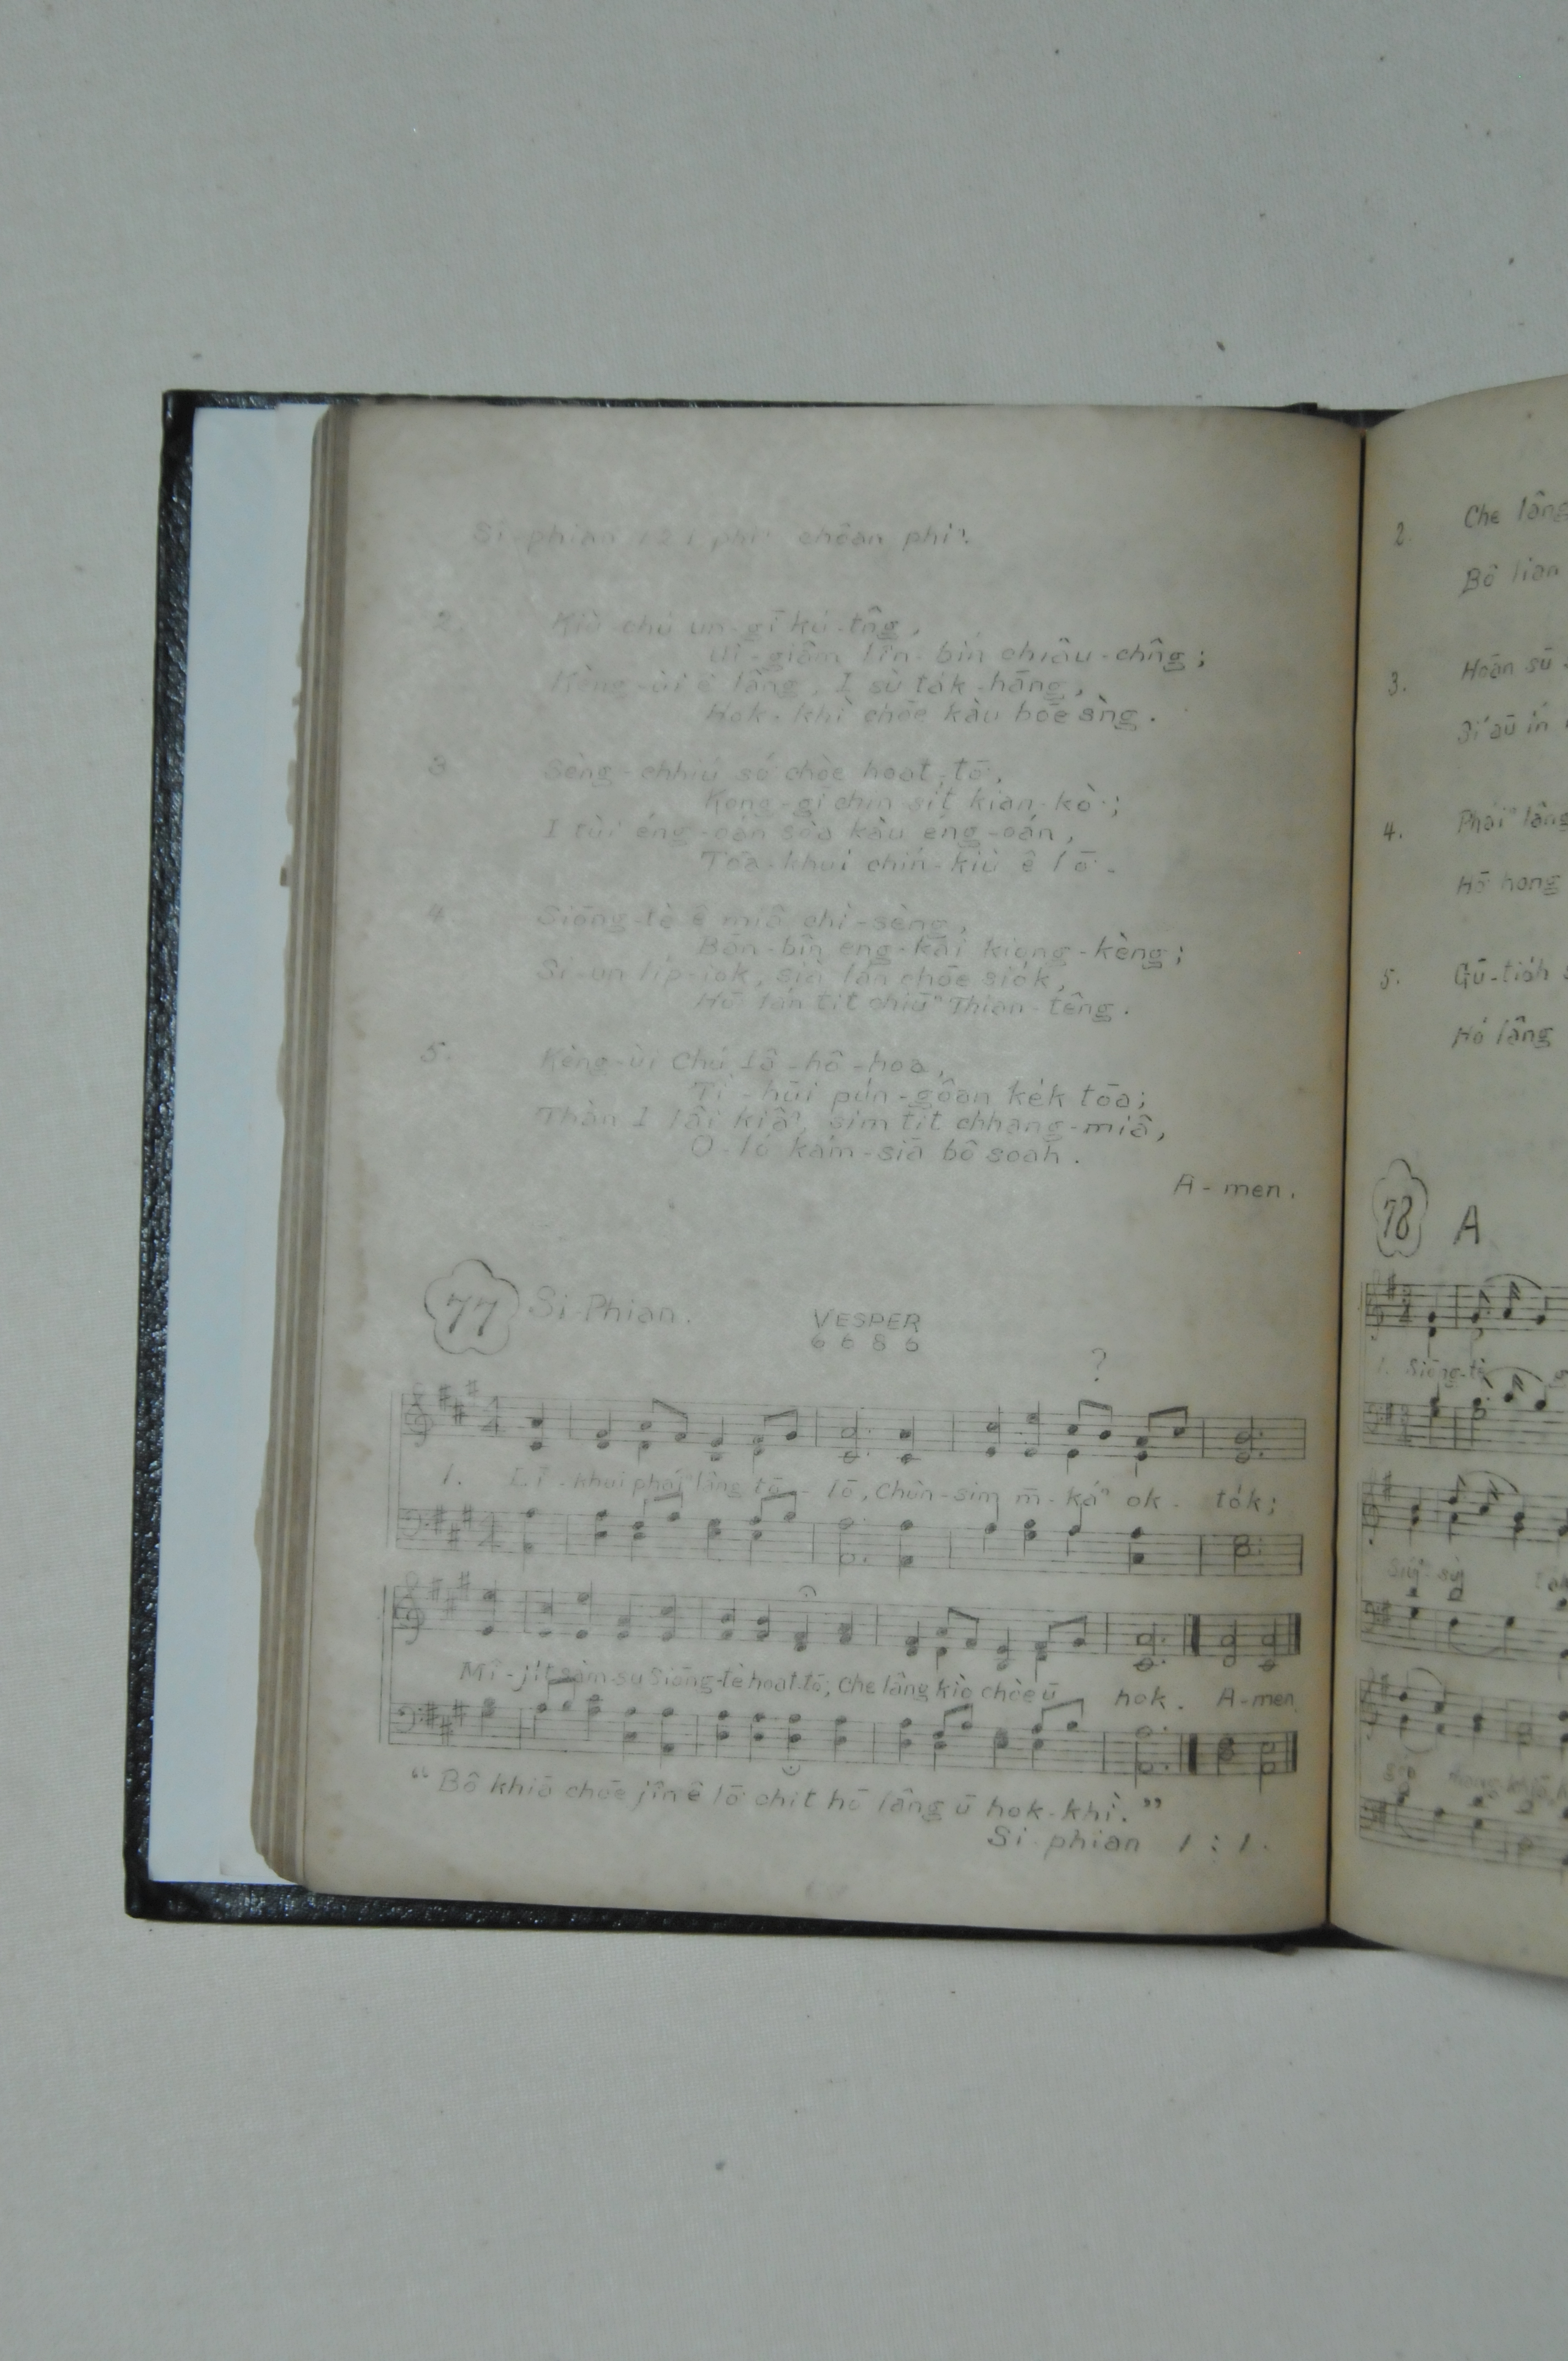 Si-phian 121 phiⁿ chôan phiⁿ.
2. Kiù-chú un-gī kú-tn̂g,
Ûi-giâm lîn-bín chiâu-chn̂g;
Kèng-ùi ê lâng, I sù ta̍k-hāng,
Hok-khì chōe kàu bōe sǹg.
3 Sèng-chhiú só͘ chòe hoat-tō͘,
Kong-gī chin-sit kian-kò͘;
I tùi éng-oán sòa kàu éng-oán,
Tōa-khui chín-kiù ê lō͘.
4. Siōng-tè ê miâ chì-sèng,
Bān-bîn eng-kai kiong-kèng;
Si-un li̍p-iok, sià lán chōe sio̍k,
Hō͘ lán tit chiūⁿ Thian-têng.
5. Kèng-ùi Chú Iâ-hô-hoa,
Tì-hūi pún-gôan ke̍k tōa;
Thàn I lâi kiâⁿ, sim tit chhang-miâ,
O-ló kám-siā bô soah.
A-men.
77 Si-Phian.
VESPER
6 6 8 6
?
1. Lī-khui pháiⁿ lâng tō-lō͘, Chùn-sim m̄-káⁿ ok-to̍k;
Mî-ji̍t sàm-su Siōng-tè hoat-tō͘; Che lâng kiò chòe ū hok. A-men
“Bô khiā chōe jîn ê lō͘ chit hō lâng ū hok-khì.”
Si-phian 1 : 1.
2. Che lâng
Bô lian
3. Hoān sū
Sî aū ín
4. Pháiⁿ lâng
Hō͘ hong
5. Gū-tio̍h
Hó lâng
78 A
1. Siōng-tè